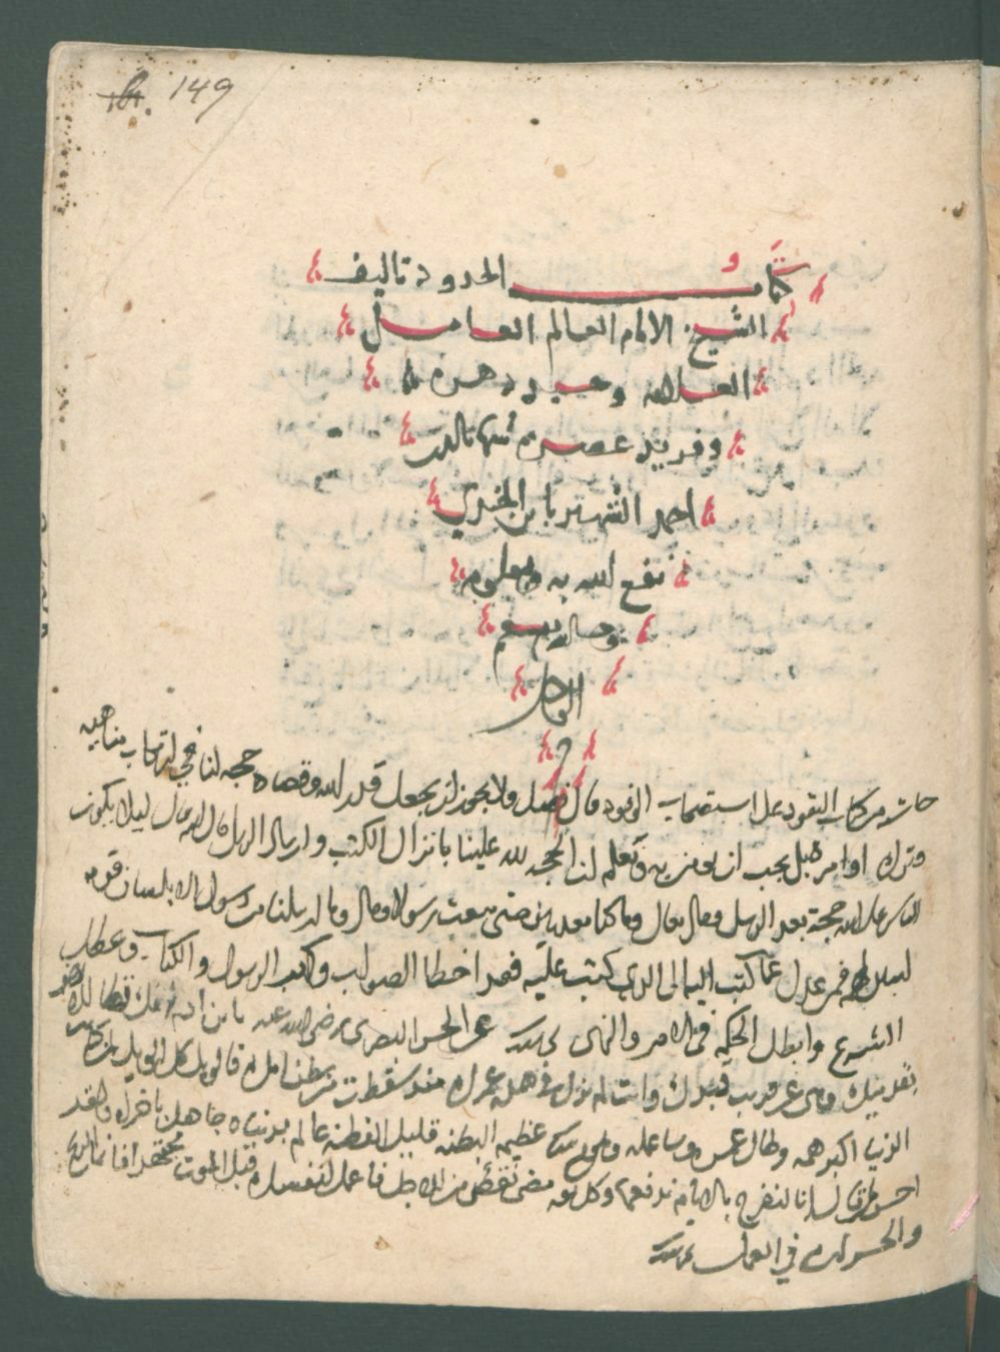 149
كتاب الحدود تاليف
الشيخ الامام العالم العامل
العلامه وحيد دهره
وفريد عصره شهاب الدين
احمد الشهير بابن
نفع الله به وبعلومه

حاشيه من كتاب على استصحاب قال فصل ولا يجوز ان يجعل قدر الله وقضاه حجه لنا في ارتكاب مناهيه
وترك اوامره بل يجب ان نومن به ونعلم لنا الحجه لله علينا بانزال الكتب وارسال الرسل قال الله تعالى ليلا يكون
للناس على الله حجة بعد الرسل وقال تعالى وما كنا معذبين حتى نبعث رسولا وقال وما ارسلنا من رسول الا بلسان قومه
ليبين لهم فمن عدل عما كتب اليه الى الذي كتب عليه فقد اخطا الصواب وكذب الرسول والكتاب وعطل
الشرع وابطل الحكمه في الامر والنهي عن الحسن البصري رضي الله عنه يا بن ادم
عن قريب قبرك وانت لم تزل في هدم عمرك منذ سقطت من بطن امك
الدنيا اكبر همه وطال عمره وسا عمله عظيم البطنه قليل الفطنه عالم بدنياه جاهل باخراه ولقد
احسن انا لنفرح بالايام ندفعها وكل يوم مضى نقص من الاجل فاعمل لنفسك قبل الموت مجتهدا فانما الربح
والخسران في العمل